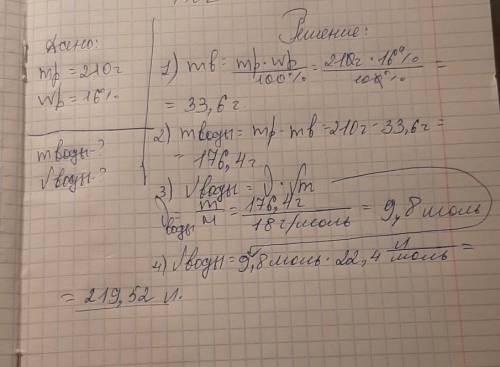 Дано:
mр = 210г
wр = 16%
mводы-?
Vводы-?
Решение:
1) mв = mр · wр / 100% = 210г · 16% / 100% =
= 33,6 г
2) mводы = mр - mв = 210г - 33,6г =
= 176,4г
3) Vводы = ν · Vm
νводы = m / M = 176,4г / 18 г/моль = 9,8 моль
4) Vводы = 9,8 моль · 22,4 л/моль =
= 219,52 л.